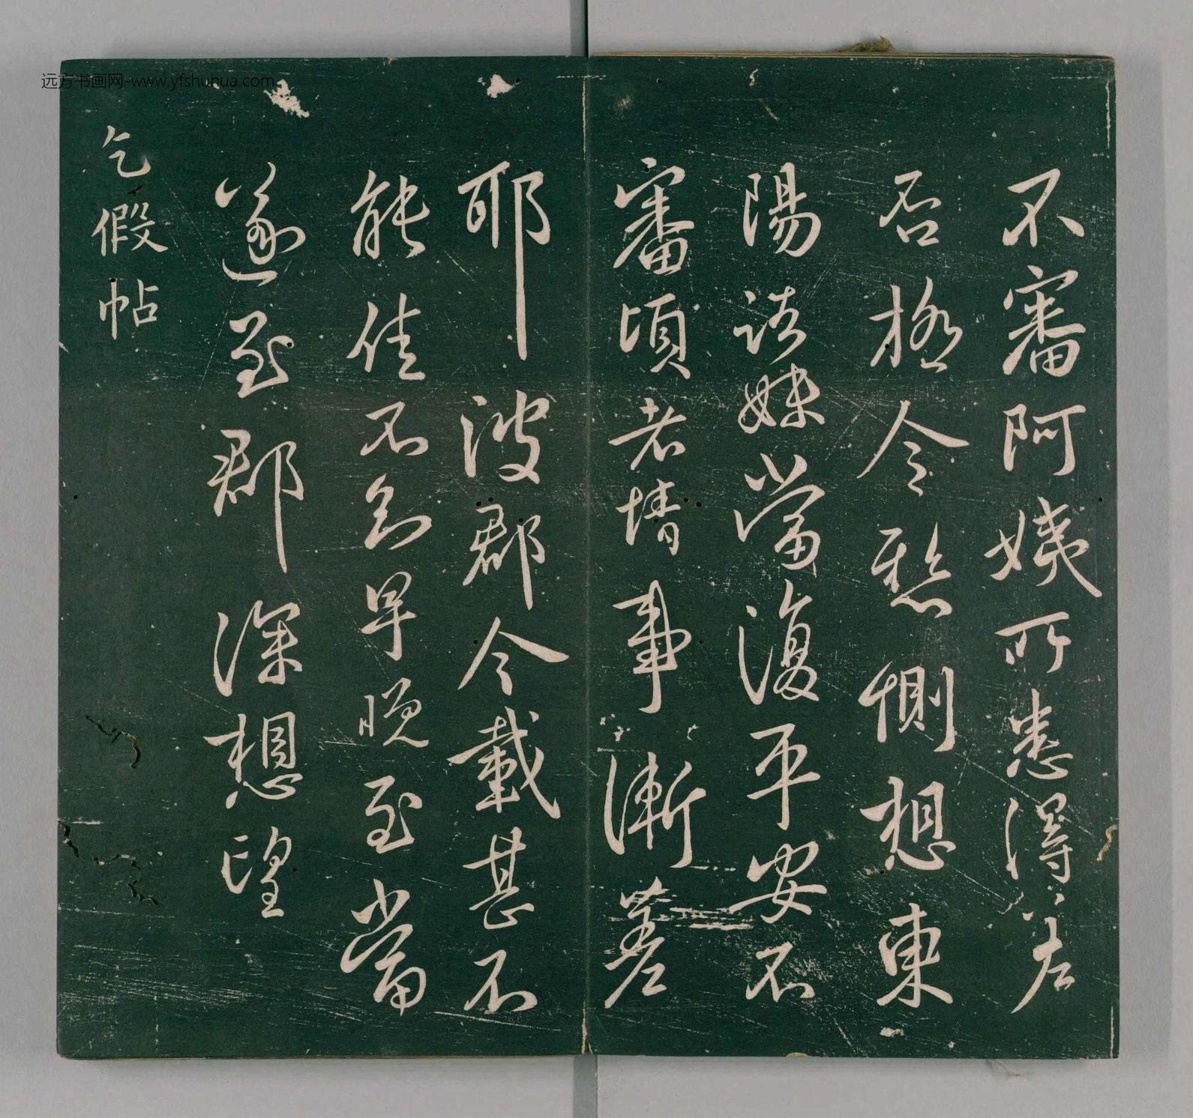 远方书画网-www.yfshuhua.com
不審阿姨所患得差
否極令惻想東
陽諸妹當復平安不
審頃者情事漸差
耶彼郡今載甚不
能佳不知早晚至當
遂至郡深想望
乞假帖